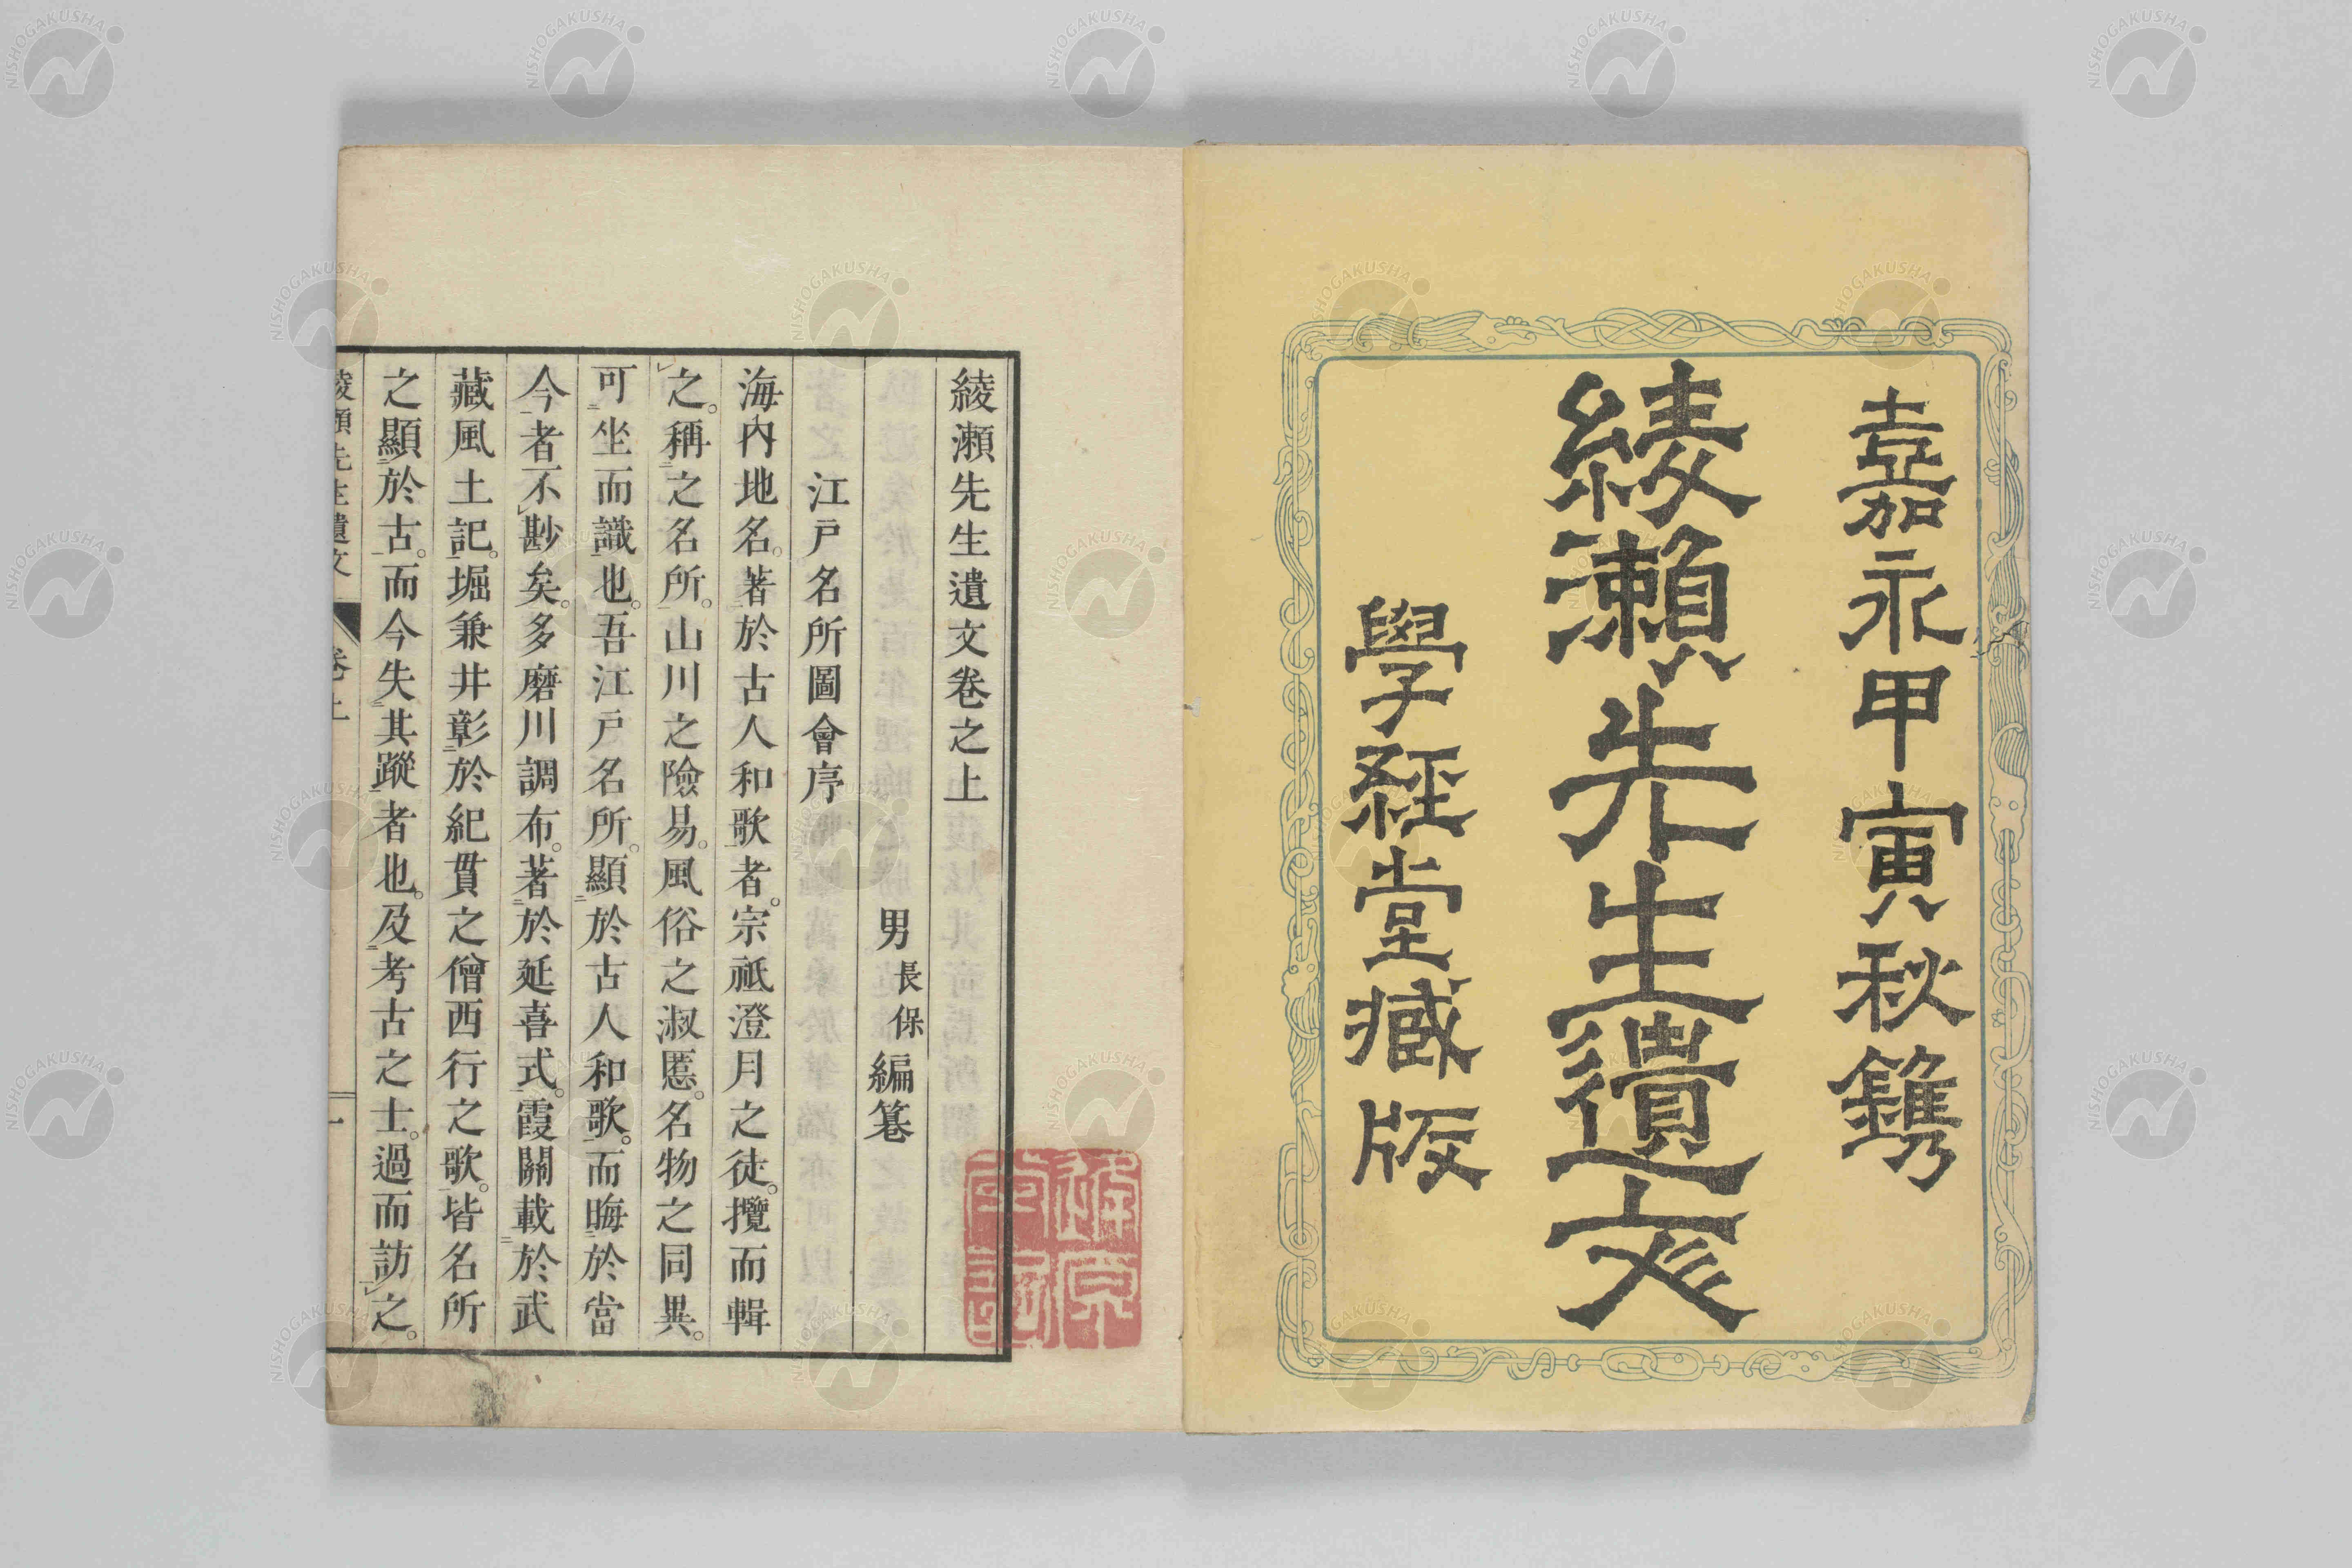 嘉永甲寅秋鐫
綾瀬先生遺文
學經堂藏版
綾瀬先生遺文卷之上
男 長保 編纂
江戸名所圖會序
海内地名。著於古人和歌者。宗祇澄月之徒。攬而輯
之。稱之名所。山川之險易。風俗之淑慝。名物之同異。
可坐而識也。吾江戸名所。顯於古人和歌。而晦於當
今者不尠矣。多磨川調布。著於延喜式。霞關載於武
藏風土記。堀兼井彰於紀貫之僧西行之歌。皆名所
之顯於古。而今失其蹤者也。及考古之士。過而訪之。
綾瀬先生遺文 卷上 一
NISHOGAKUSHA